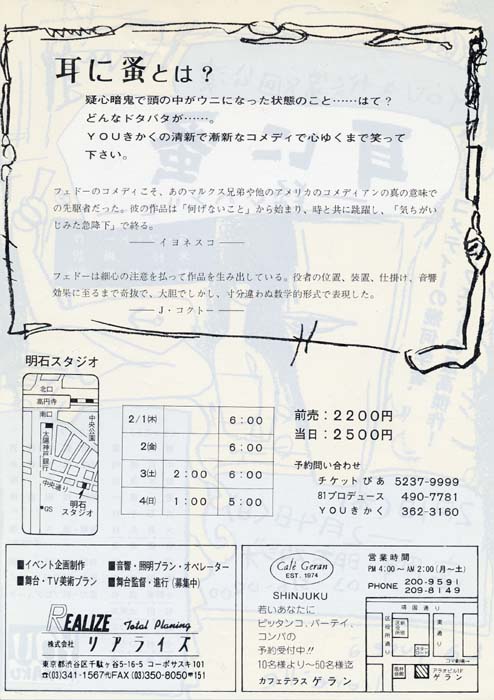 耳に蚤とは？
疑心暗鬼で頭の中がウニになった状態のこと……はて？
どんなドタバタが……。
ＹＯＵきかくの清新で漸新なコメディで心ゆくまで笑って
下さい。
フェドーのコメディこそ、あのマルクス兄弟や他のアメリカのコメディアンの真の意味で
の先駆者だった。彼の作品は「何げないこと」から始まり、時と共に跳躍し、「気ちがい
じみた急降下」で終る。
――イヨネスコ――
フェドーは細心の注意を払って作品を生み出している。役者の位置、装置、仕掛け、音響
効果に至るまで奇抜で、大胆でしかし、寸分違わぬ数学的形式で表現した。
――J・コクトー――
明石スタジオ
北口
高円寺
南口
中央公園
太陽神戸銀行
中央通り
明石スタジオ
GS
2/1㈭ 6:00
2㈮ 6:00
3㈯ 2:00 6:00
4㈰ 1:00 5:00
前売：2200円
当日：2500円
予約問い合わせ
チケットぴあ 5237-9999
81プロデュース 490-7781
ＹＯＵきかく 362-3160
■イベント企画制作 ■音響・照明プラン・オペレーター
■舞台・TV美術プラン ■舞台監督・進行(募集中)
REALIZE Total Planing
株式会社 リアライズ
東京都渋谷区千駄ヶ谷5-16-5 コーポサスキ101
☎(03)341-1567㈹FAX(03)350-8050〒151
Café Geran
EST. 1974
SHINJUKU
若いあなたに
ピッタンコ、パーティ、
コンパの
予約受付中!!
10名様より〜50名様迄
カフェテラス ゲラン
営業時間
PM 4:00〜AM 2:00(月〜土)
PHONE 200-9591
209-8149
靖国通り
区役所通り
新宿区役所
東通り
コマ劇場→
アラオビル1F
ゲラン